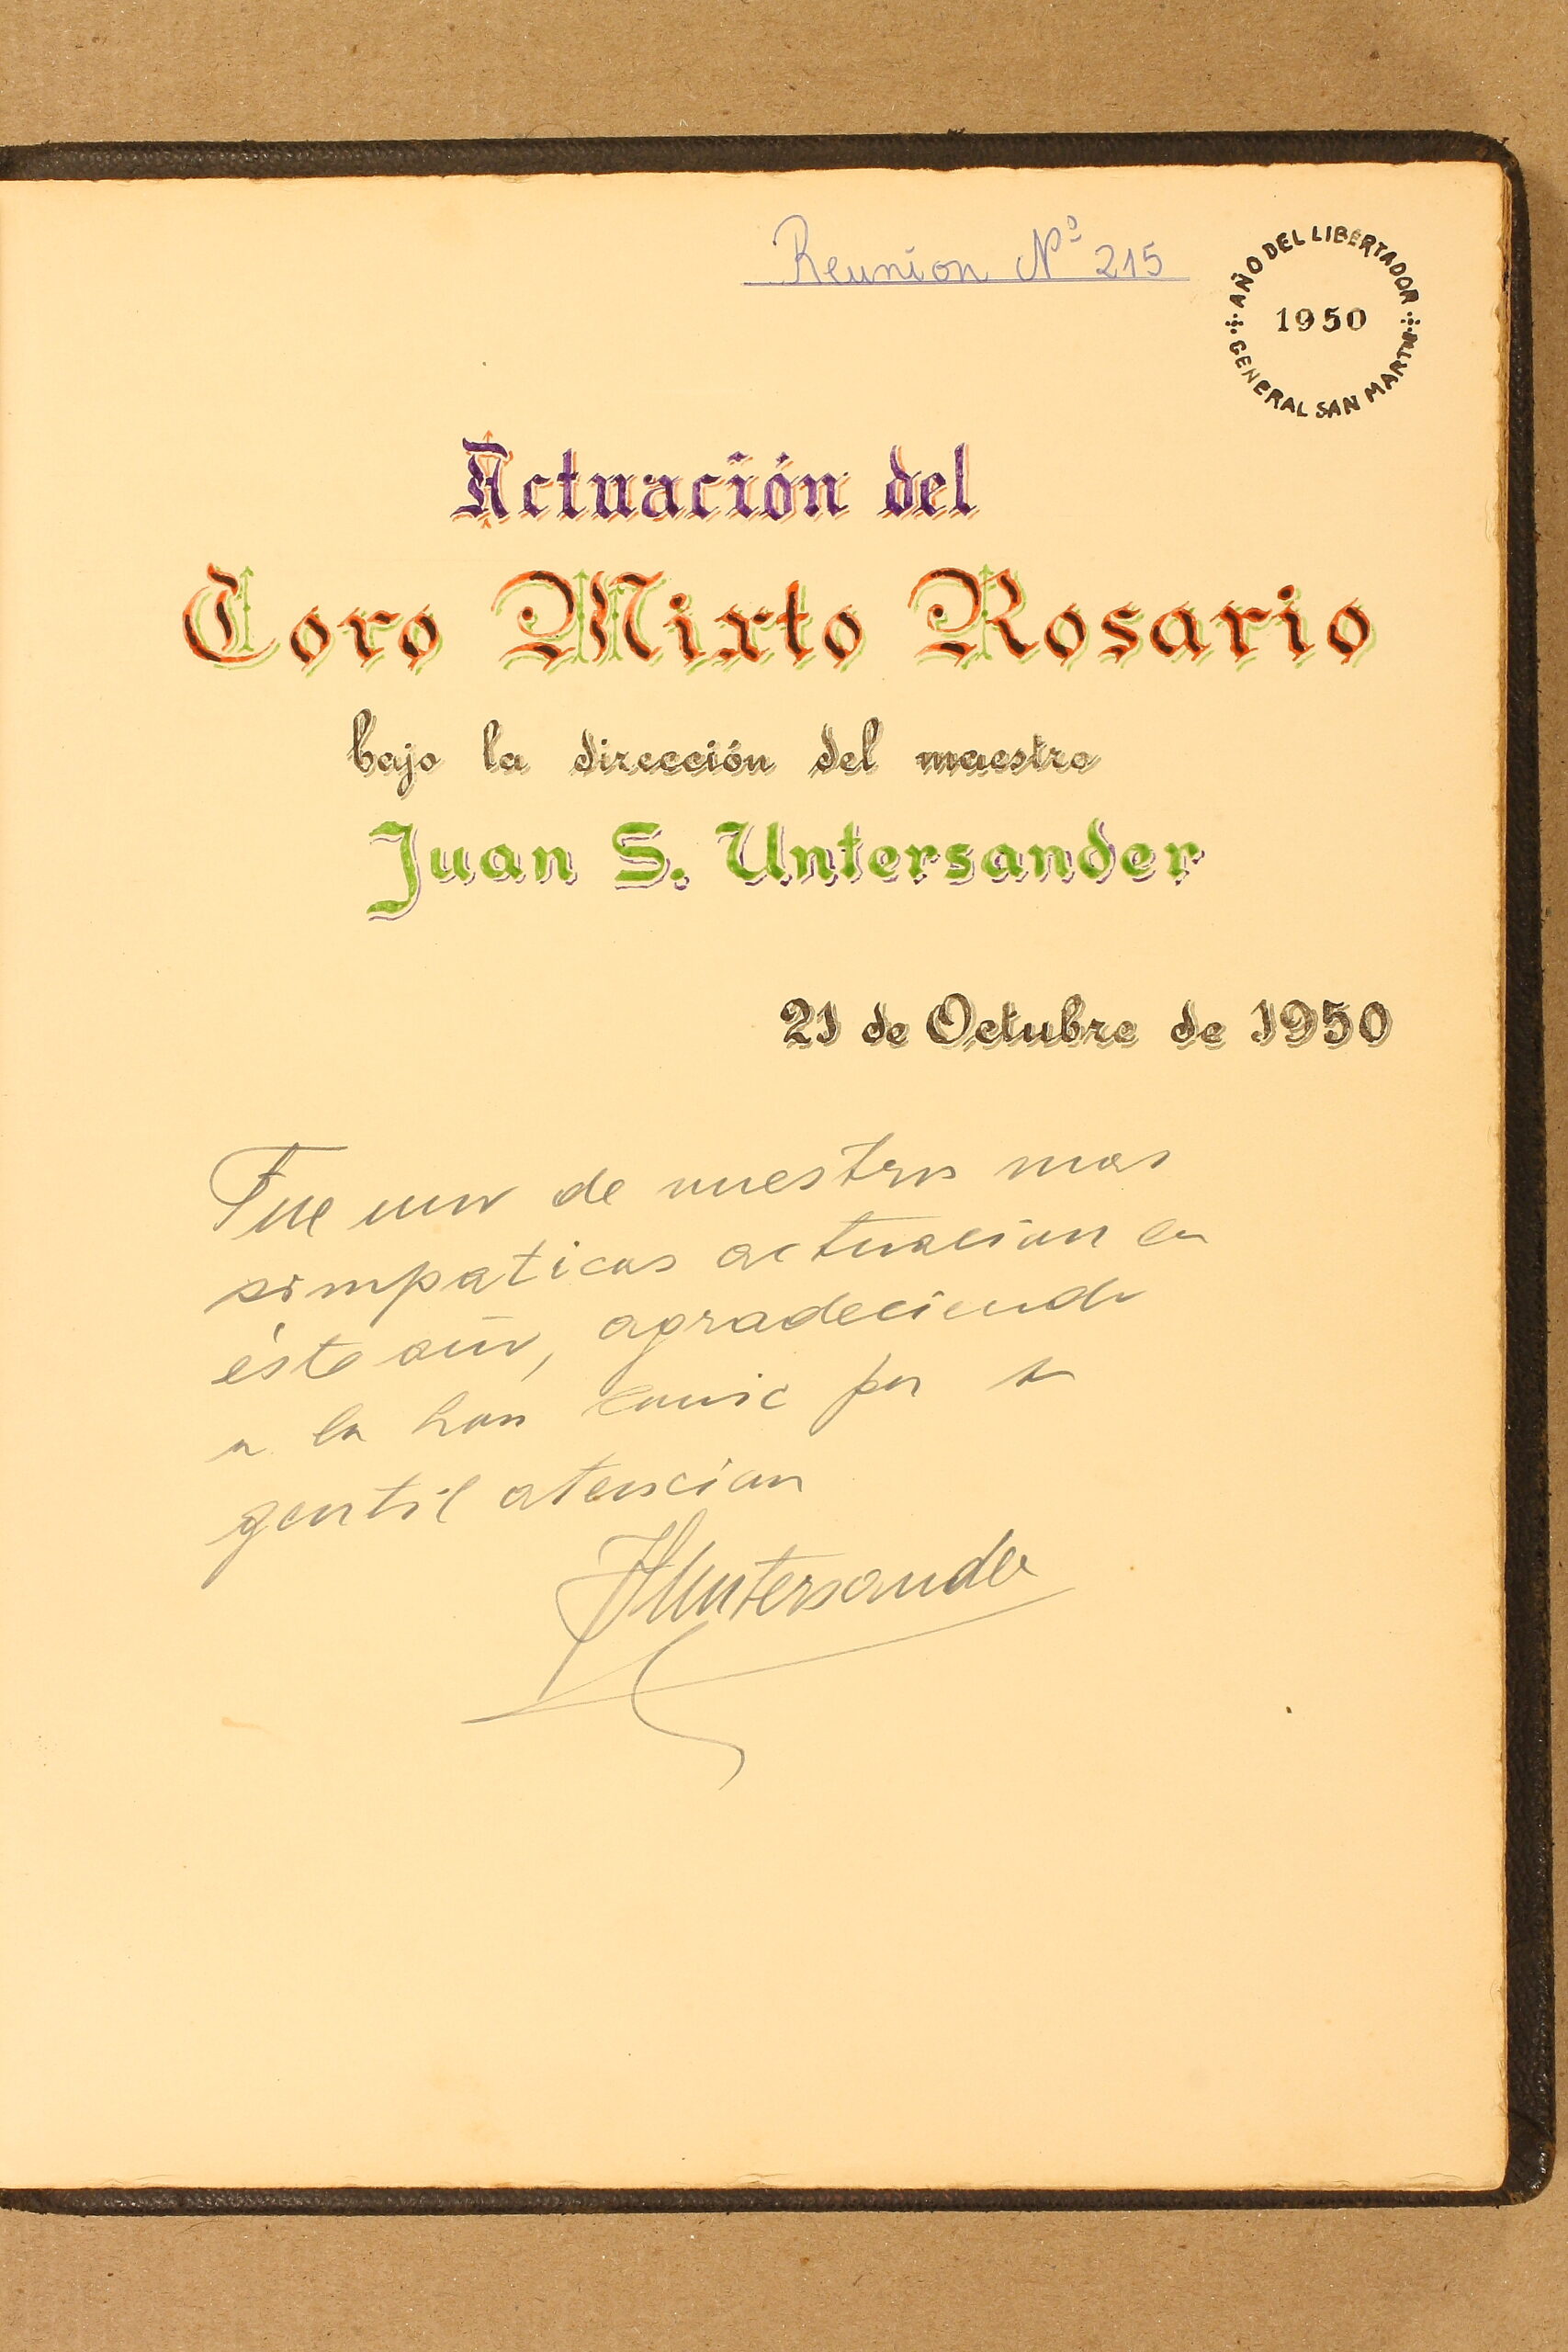 Reunion Nº 215
AÑO DEL LIBERTADOR
1950
GENERAL SAN MARTIN
Actuación del
Coro Mixto Rosario
bajo la dirección del maestro
Juan S. Untersander
21 de Octubre de 1950
Fue uno de nuestras mas
simpaticas actuacion en
éste año, agradeciendo
a la hon por su
gentil atencion
JUntersander